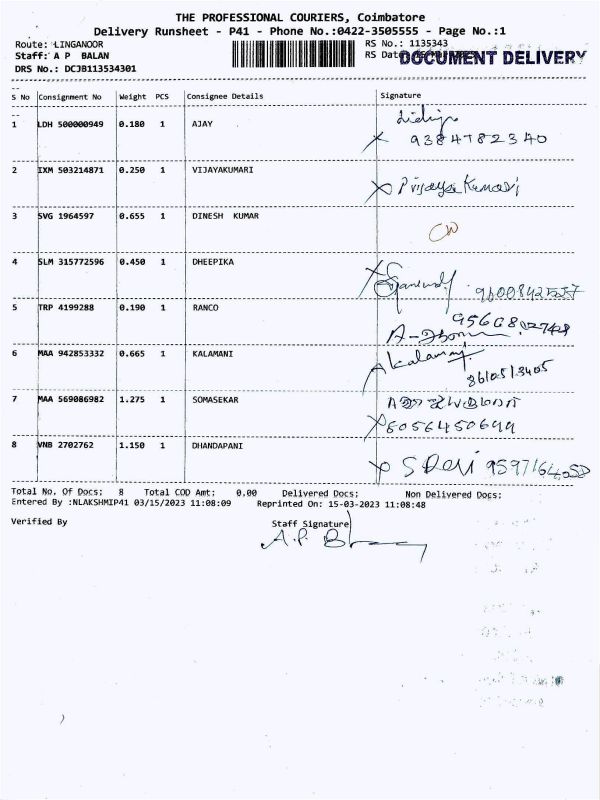 THE PROFESSIONAL COURIERS, Coimbatore
Delivery Runsheet - P41 - Phone No.:0422-3505555 - Page No.:1
Route: LINGANOOR
RS No.: 1135343
Staff: A P BALAN
RS Date
DOCUMENT DELIVERY
DRS No.: DCJB113534301
S No Consignment No Weight PCS Consignee Details Signature
1 LDH 500000949 0.180 1 AJAY
9384782340
2 IXM 503214871 0.250 1 VIJAYAKUMARI
3 SVG 1964597 0.655 1 DINESH KUMAR
4 SLM 315772596 0.450 1 DHEEPIKA
5 TRP 4199288 0.190 1 RANCO
6 MAA 942853332 0.665 1 KALAMANI
Akalamany
7 MAA 569086982 1.275 1 SOMASEKAR
8056450699
8 VNB 2702762 1.150 1 DHANDAPANI
S Devi
Total No. Of Docs: 8 Total COD Amt: 0.00 Delivered Docs: Non Delivered Docs:
Entered By :NLAKSHMIP41 03/15/2023 11:08:09 Reprinted On: 15-03-2023 11:08:48
Verified By
Staff Signature
A.P. B